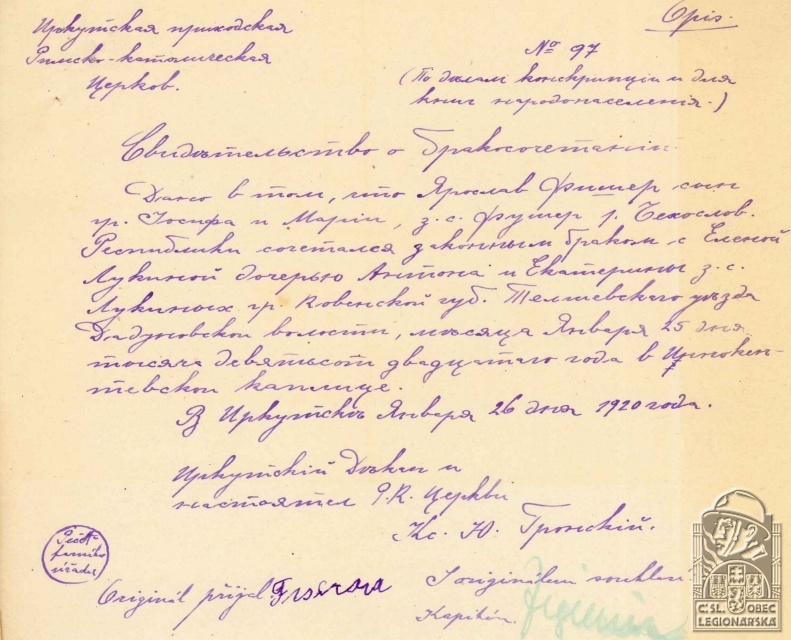 Opis.
Иркутская приходская
Римско-католическая
Церков.
№ 97
(По дѣлам конскрипціи и для
книг народонаселенія.)
Свидѣтельство о бракосочетаніи.
Дано в том, что Ярослав Фишер сын
гр. Іосифа и Маріи, з. с. Фишер г. Чехослов.
Республики сочетался законным браком с Еленой
Лукиной дочерью Антона и Екатерины з. с.
Лукиных гр. Ковенской губ. Телшевского уѣзда
волости, мѣсяца Января 25 дня
тысяча девятьсот двадцатаго года в Инокен-
тевской каплице.
В Иркутскѣ Января 26 дня 1920 года.
Иркутскій Декан и
настоятел Р. К. Церкви
Кс. Ю. Гронскій.
Originál přijal: Fišerova
S originálem souhlasí
Kapitán
ČSL. OBEC
LEGIONÁŘSKÁ